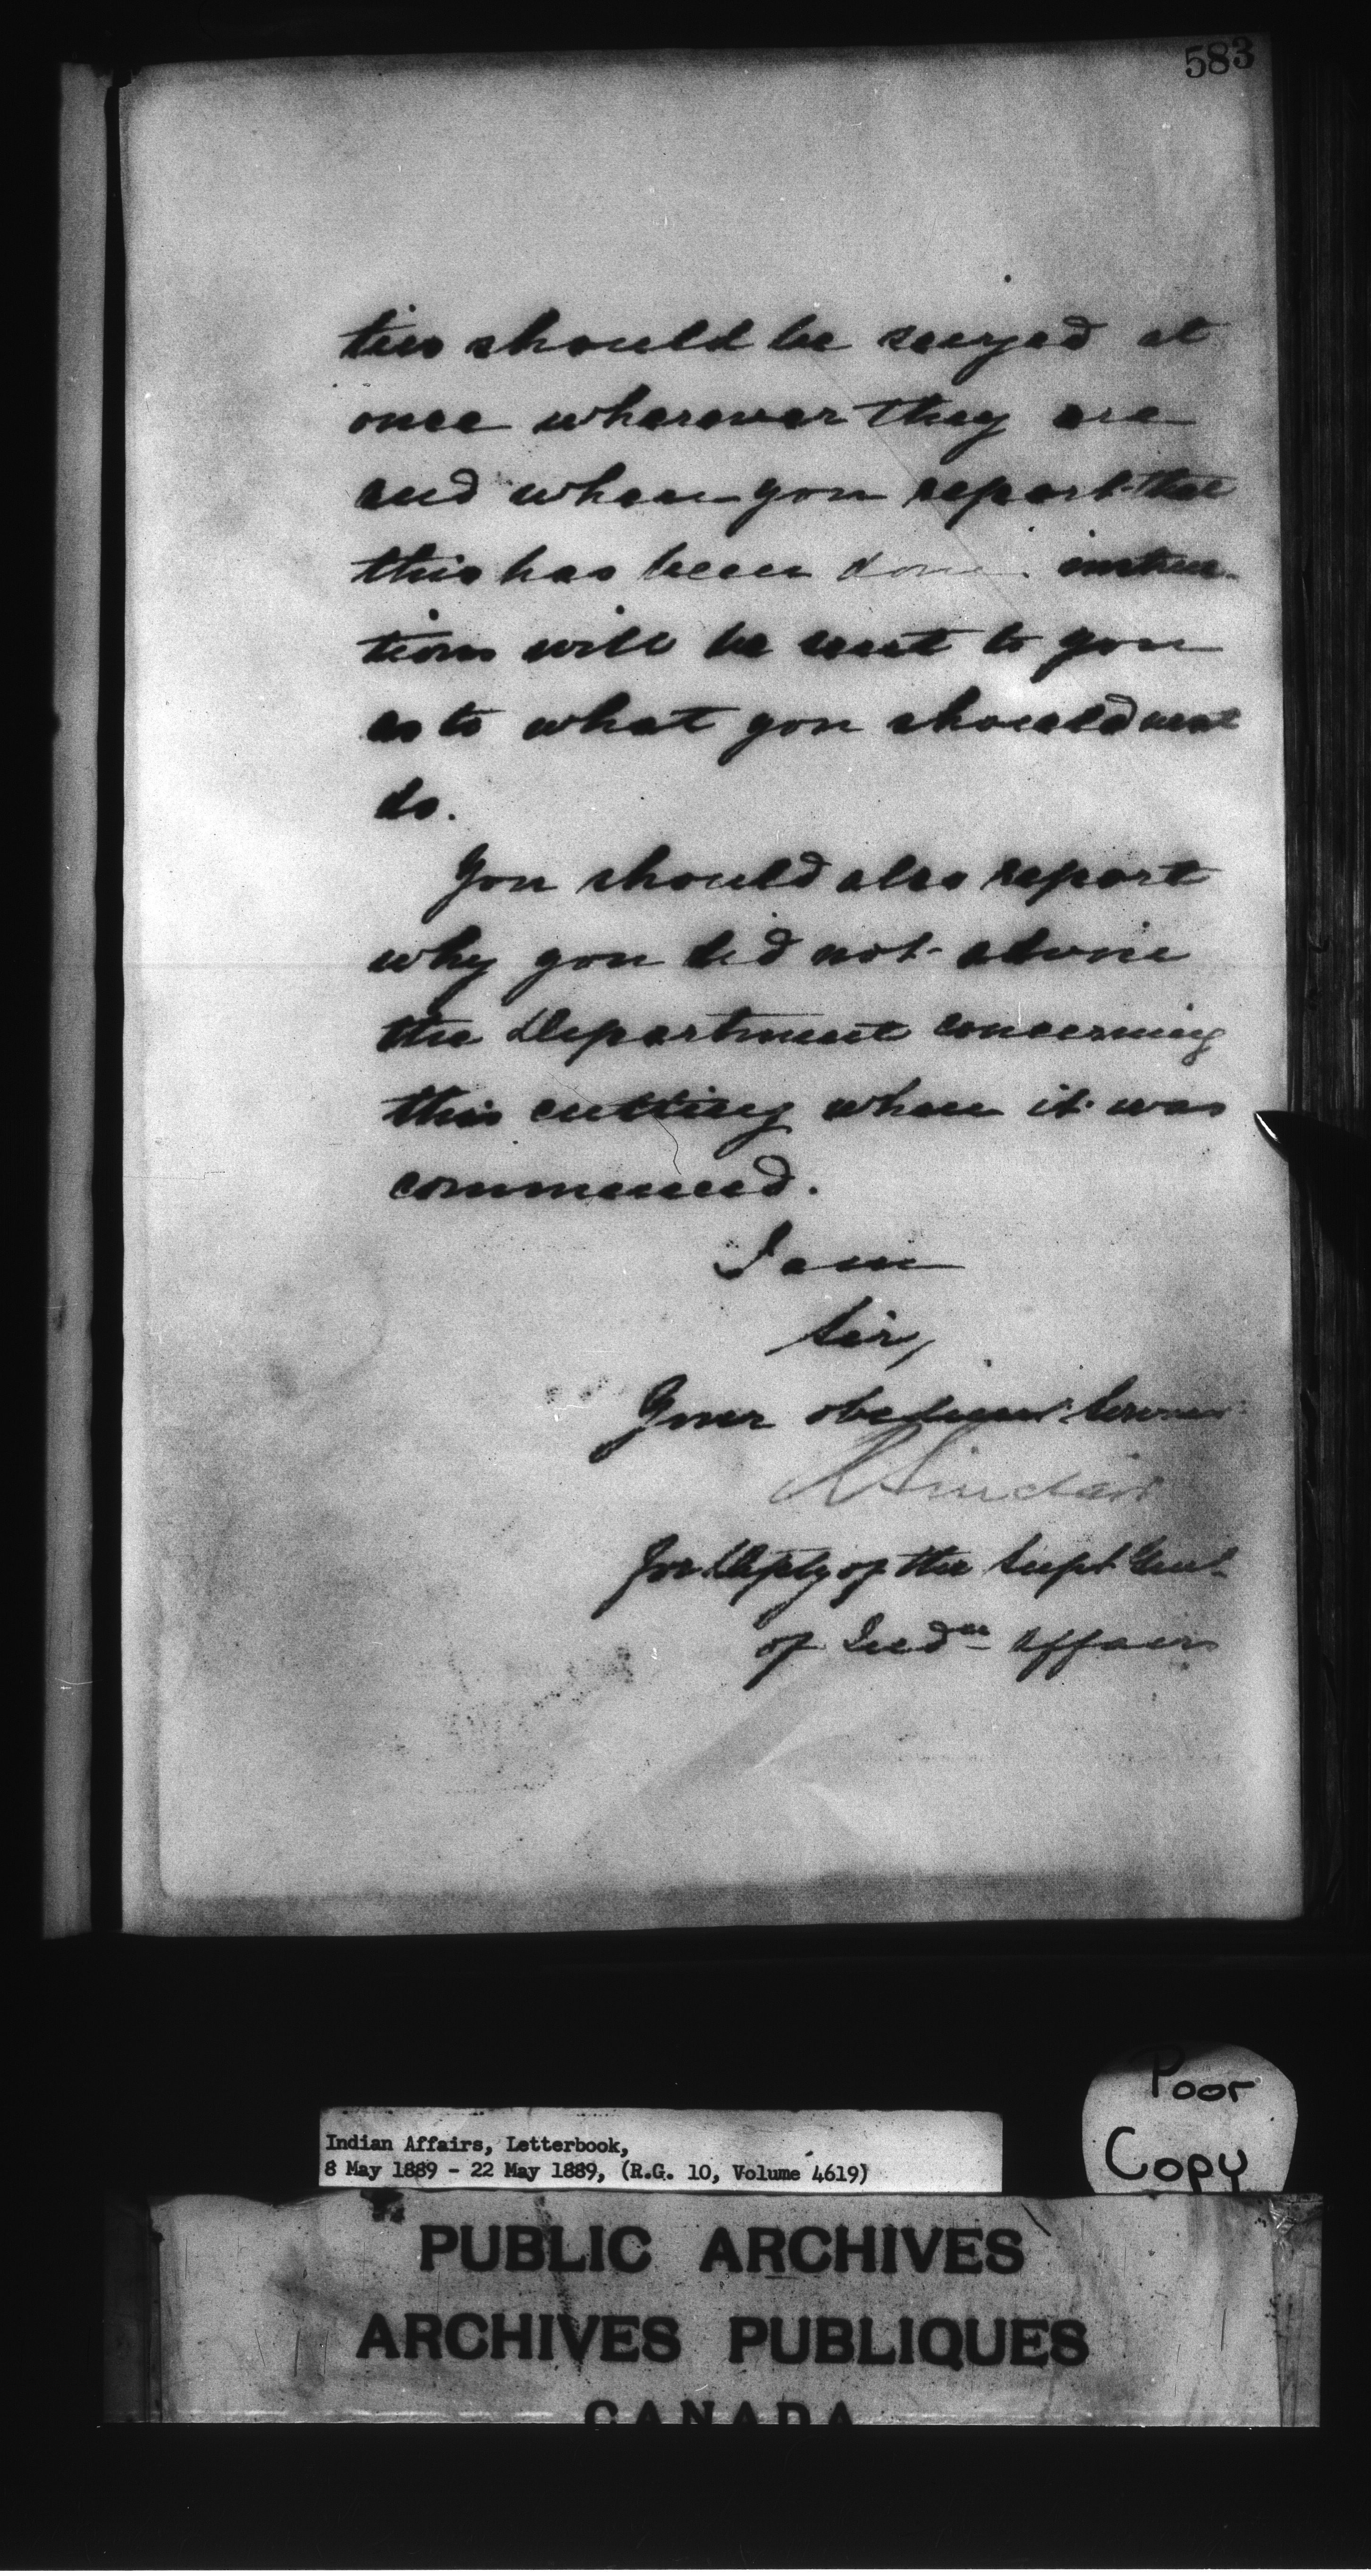 583
ties should be seized at
once wherever they are
and when you report that
this has been done instruc-
tions will be sent to you
as to what you should next
do.
You should also report
why you did not advise
the Department concerning
this cutting when it was
commenced.
I am
Sir,
Your obedient Servant
R Sinclair
for Depty of the Supt Genl.
of Indn Affairs
Poor
Copy
Indian Affairs, Letterbook,
8 May 1889 - 22 May 1889, (R.G. 10, Volume 4619)
PUBLIC ARCHIVES
ARCHIVES PUBLIQUES
CANADA